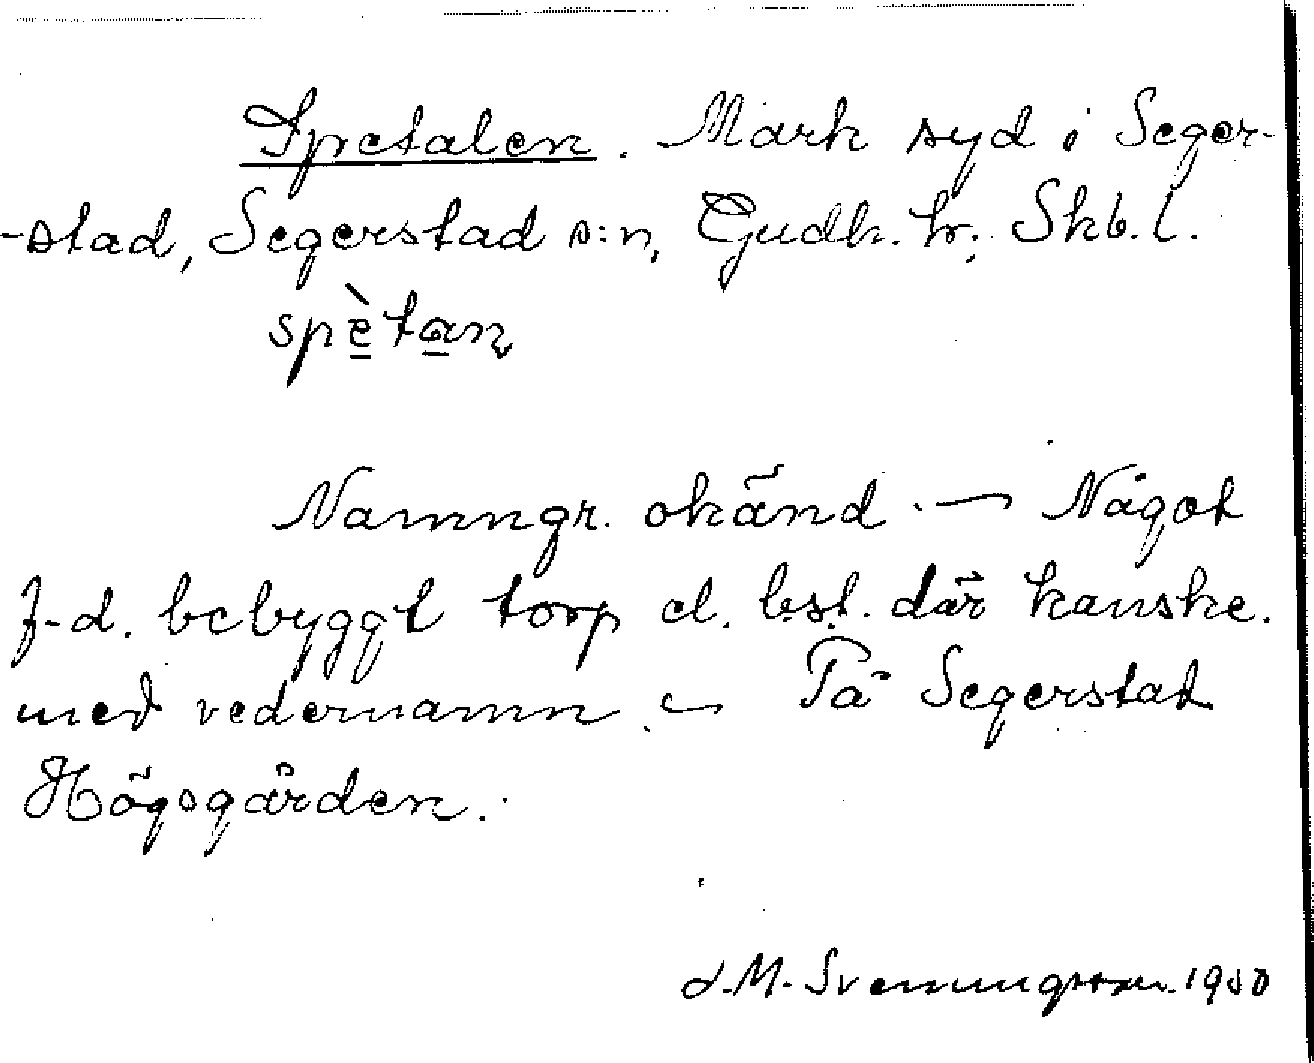 Spetalen. Mark syd i Seger-
-stad, Segerstad s:n, Gudh. hr; Skb. l.
spètan
Namngr. okänd. — Något
f.d. bebyggt torp el. bst. där kanske.
med vedernamn. — På Segerstad
Högsgården.
J. M. Svenungsson 1930